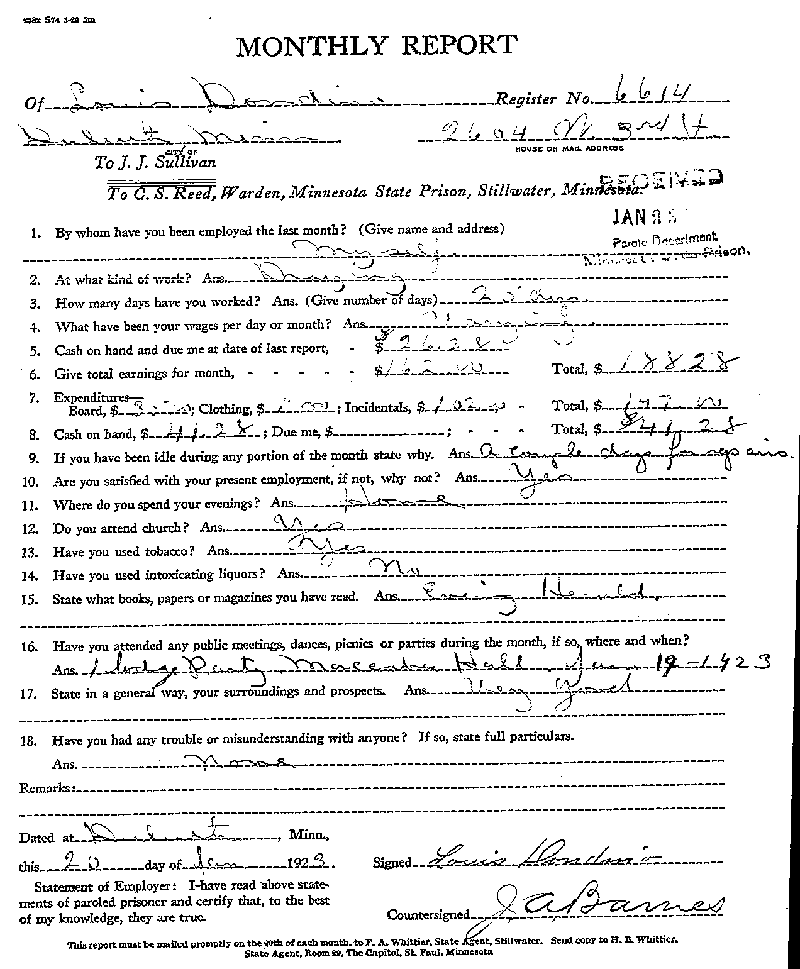 MONTHLY REPORT
Of Louis Dondino Register No. 6614
Duluth Minn 2604 W 3rd St
HOUSE OR MAIL ADDRESS
CITY OF
To J. J. Sullivan
To C. S. Reed, Warden, Minnesota State Prison, Stillwater, Minnesota.
RECEIVED
JAN
Parole Department
Prison.
1. By whom have you been employed the last month? (Give name and address)
Myself
2. At what kind of work? Ans. Draying
3. How many days have you worked? Ans. (Give number of days) 25 days
4. What have been your wages per day or month? Ans.
5. Cash on hand and due me at date of last report, - $ 26.28
6. Give total earnings for month, - - - - - $ 162.00 Total, $ 188.28
7. Expenditures—
Board, $ ; Clothing, $ ; Incidentals, $ - Total, $ 147.00
8. Cash on hand, $ 41.28 ; Due me, $ ; - - - Total, $ 41.28
9. If you have been idle during any portion of the month state why. Ans. A couple days for repairs.
10. Are you satisfied with your present employment, if not, why not? Ans. Yes
11. Where do you spend your evenings? Ans. Home
12. Do you attend church? Ans. Yes
13. Have you used tobacco? Ans. Yes
14. Have you used intoxicating liquors? Ans. No
15. State what books, papers or magazines you have read. Ans. Evening Herald.
16. Have you attended any public meetings, dances, picnics or parties during the month, if so, where and when?
Ans. 1 lodge Party Maccabee Hall Jan 19-1923
17. State in a general way, your surroundings and prospects. Ans. Very Good
18. Have you had any trouble or misunderstanding with anyone? If so, state full particulars.
Ans. None
Remarks:
Dated at Duluth, Minn.,
this 20 day of Jan 1923. Signed Louis Dondino
Statement of Employer: I have read above state-
ments of paroled prisoner and certify that, to the best
of my knowledge, they are true. Countersigned J A Barnes
This report must be mailed promptly on the 20th of each month, to F. A. Whittier, State Agent, Stillwater. Send copy to H. B. Whittier,
State Agent, Room 22, The Capitol, St. Paul, Minnesota